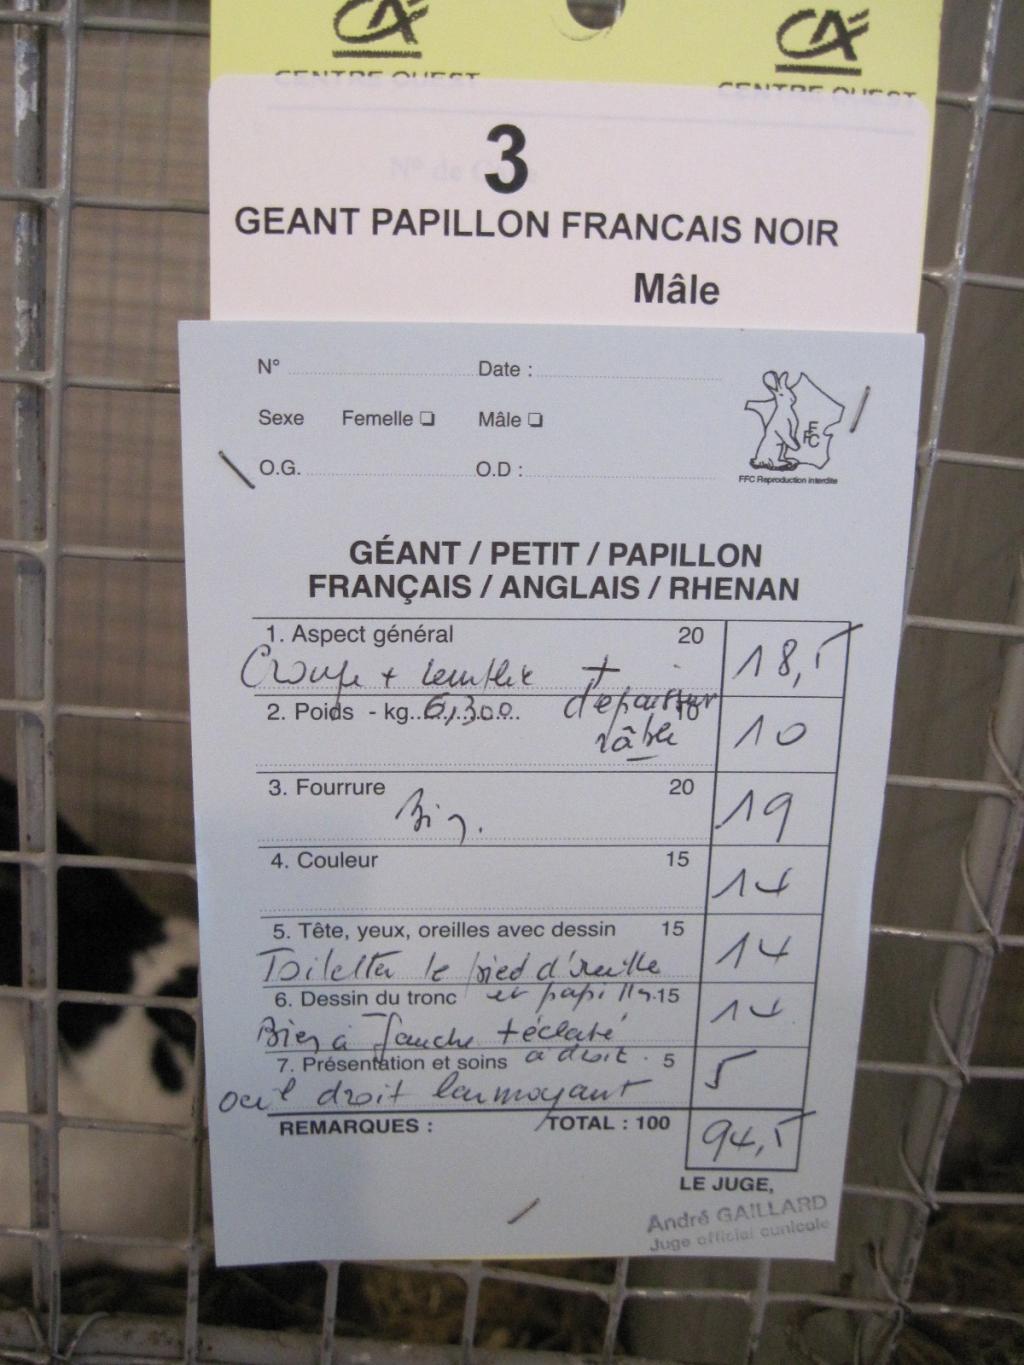 CA CA
CENTRE OUEST CENTRE OUEST
3
GEANT PAPILLON FRANCAIS NOIR
Mâle
N° Date :
Sexe Femelle Mâle
O.G. O.D :
FFC
FFC Reproduction interdite
GÉANT / PETIT / PAPILLON
FRANÇAIS / ANGLAIS / RHENAN
1. Aspect général 20 18,5
Croupe + remplie +
2. Poids - kg. 6,300 d'épaisseur 10 10
râble
3. Fourrure 20 19
Bien.
4. Couleur 15 14
5. Tête, yeux, oreilles avec dessin 15 14
Toiletter le pied d'oreille
6. Dessin du tronc et papillon 15 14
Bien à gauche + éclaté
7. Présentation et soins à droit. 5 5
oeil droit larmoyant
REMARQUES : TOTAL : 100 94,5
LE JUGE,
André GAILLARD
Juge officiel cunicole